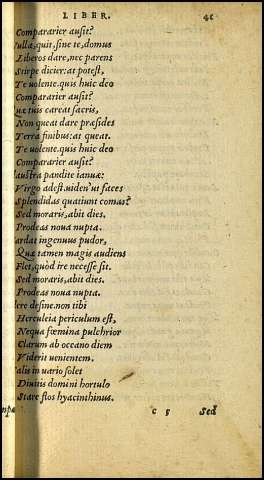 LIBER. 41
Compararier ausit?
ulla, quit, sine te, domus
Liberos dare, nec parens
Stirpe dicier: at potest,
Te uolente. quis huic deo
Compararier ausit?
Quæ tuis careat sacris,
Non queat dare præsides
Terra finibus: at queat.
Te uolente. quis huic deo
Compararier ausit?
laustra pandite ianuæ:
Virgo adest. uiden' ut faces
Splendidas quatiunt comas?
Sed moraris, abit dies.
Prodeas noua nupta.
ardat ingenuus pudor,
Quæ tamen magis audiens
Flet, quod ire necesse sit.
Sed moraris, abit dies.
Prodeas noua nupta.
lere desine. non tibi
Herculeia periculum est,
Nequa fœmina pulchrior
Clarum ab oceano diem
Viderit uenientem.
alis in uario solet
Diuitis domini hortulo
Stare flos hyacinthinus.
c 5 Sed